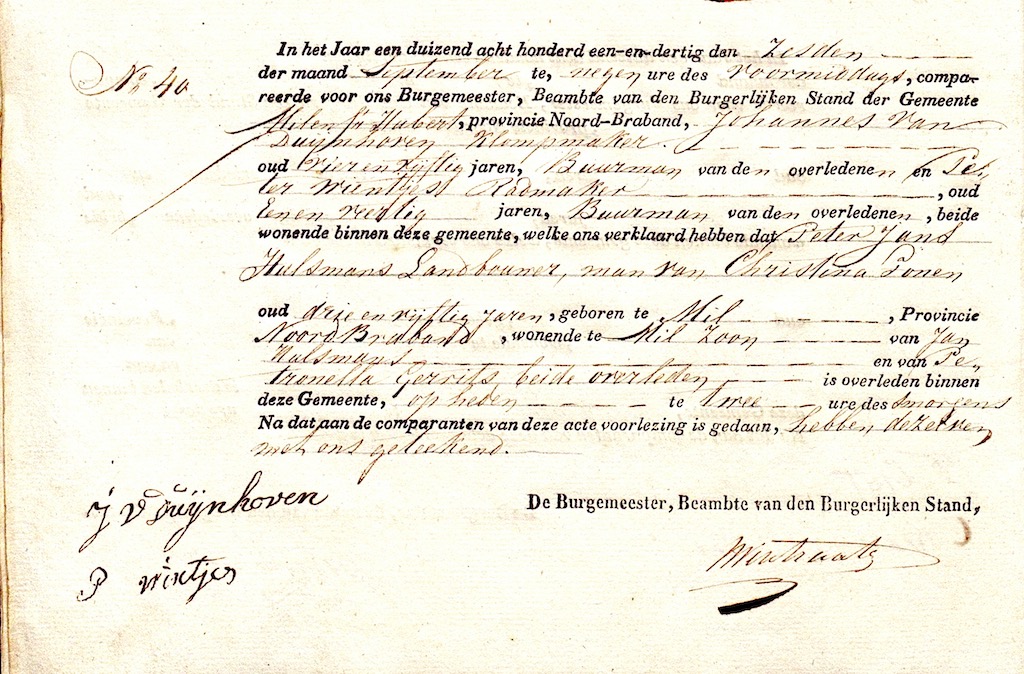 In het Jaar een duizend acht honderd een-en-dertig den Zesden
No 40
der maand September te, negen ure des voormiddags, compa-
reerde voor ons Burgemeester, Beambte van den Burgerlijken Stand der Gemeente
Mil en St Hubert, provincie Noord-Braband, Johannes van
Duijnhoven Klompmaker.
oud vier en vijftig jaren, Buurman van den overledenen en Pe„
ter Wientjes Radmaker, oud
Een en veertig jaren, Buurman van den overledenen, beide
wonende binnen deze gemeente, welke ons verklaard hebben dat Peter Jans
Hulsmans Landbouwer, man van Christina Tonen
oud drie en vijftig Jaren, geboren te Mil, Provincie
Noord Braband, wonende te Mil Zoon van Jan
Hulsmans en van Pe„
tronella Gerrits, beide overleden is overleden binnen
deze Gemeente, op heden te twee ure des smorgens
Na dat aan de comparanten van deze acte voorlezing is gedaan, hebben dezelven
met ons geteekend.
J V Duijnhoven
De Burgemeester, Beambte van den Burgerlijken Stand,
P wintjes